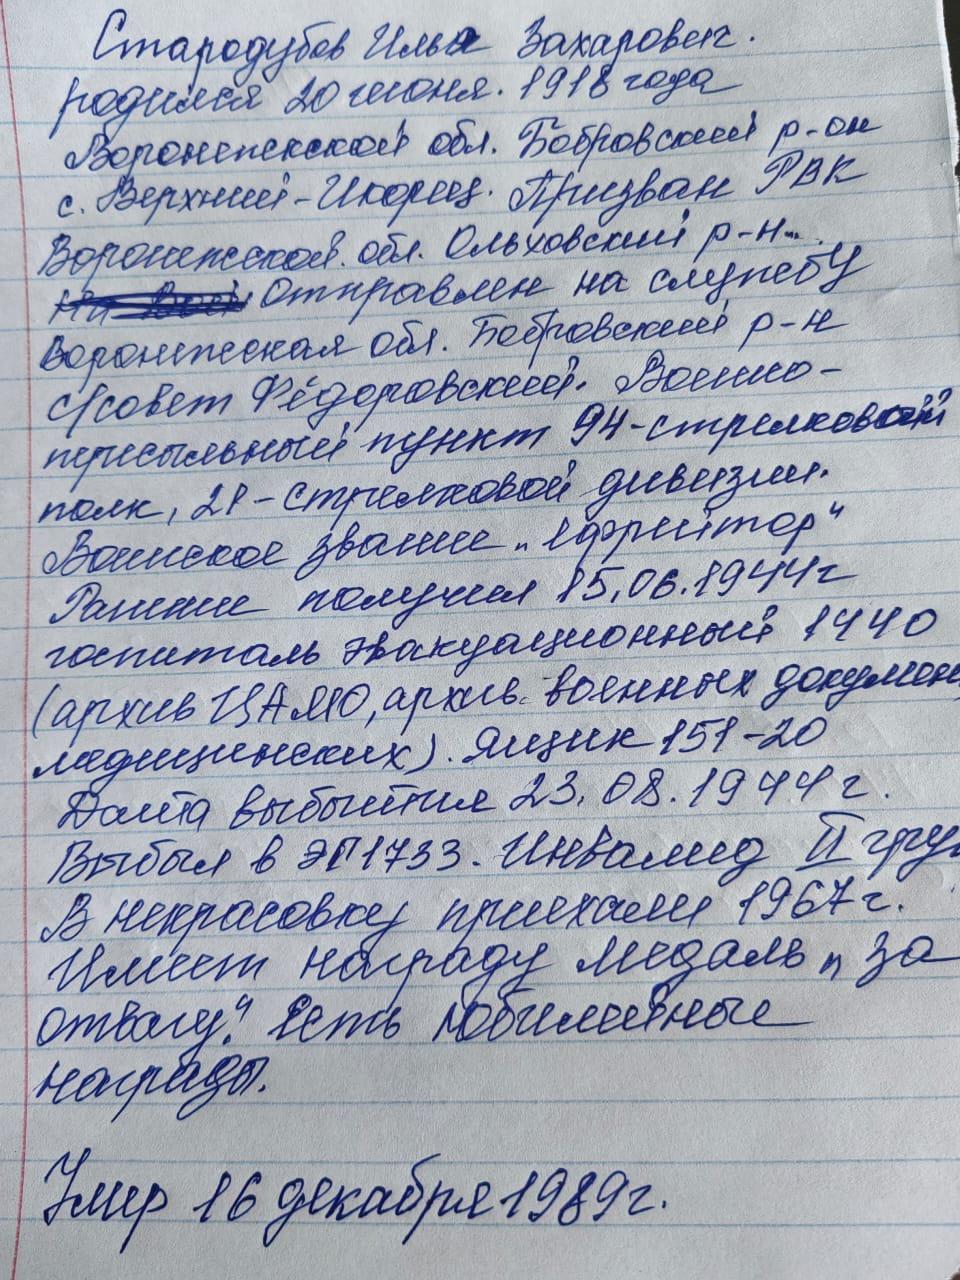 Стародубов Илья Захарович.
родился 20 июня. 1918 года
Воронежской обл. Бобровский р-он
с. Верхний-Икорец. Призван РВК
Воронежской. обл. Ольховский р-н.
Отправлен на службу
Воронежская обл. Бобровский р-н
с/совет Фёдоровский. Военно-
пересыльный пункт 94-стрелковый
полк, 21-стрелковой дивизии.
Воинское звание „Ефрейтор"
Ранение получил 15.06.1944г
госпиталь эвакуационный 1440
(архив ЦАМО, архив военных докумен
медицинских). Ящик 151-20
Дата выбытия 23.08.1944г.
Выбыл в ЭГ1733. Инвалид II гру
В некрасовку приехали 1967г.
Имеет награду медаль „за
отвагу". Есть юбилейные
награды.
Умер 16 декабря 1989г.